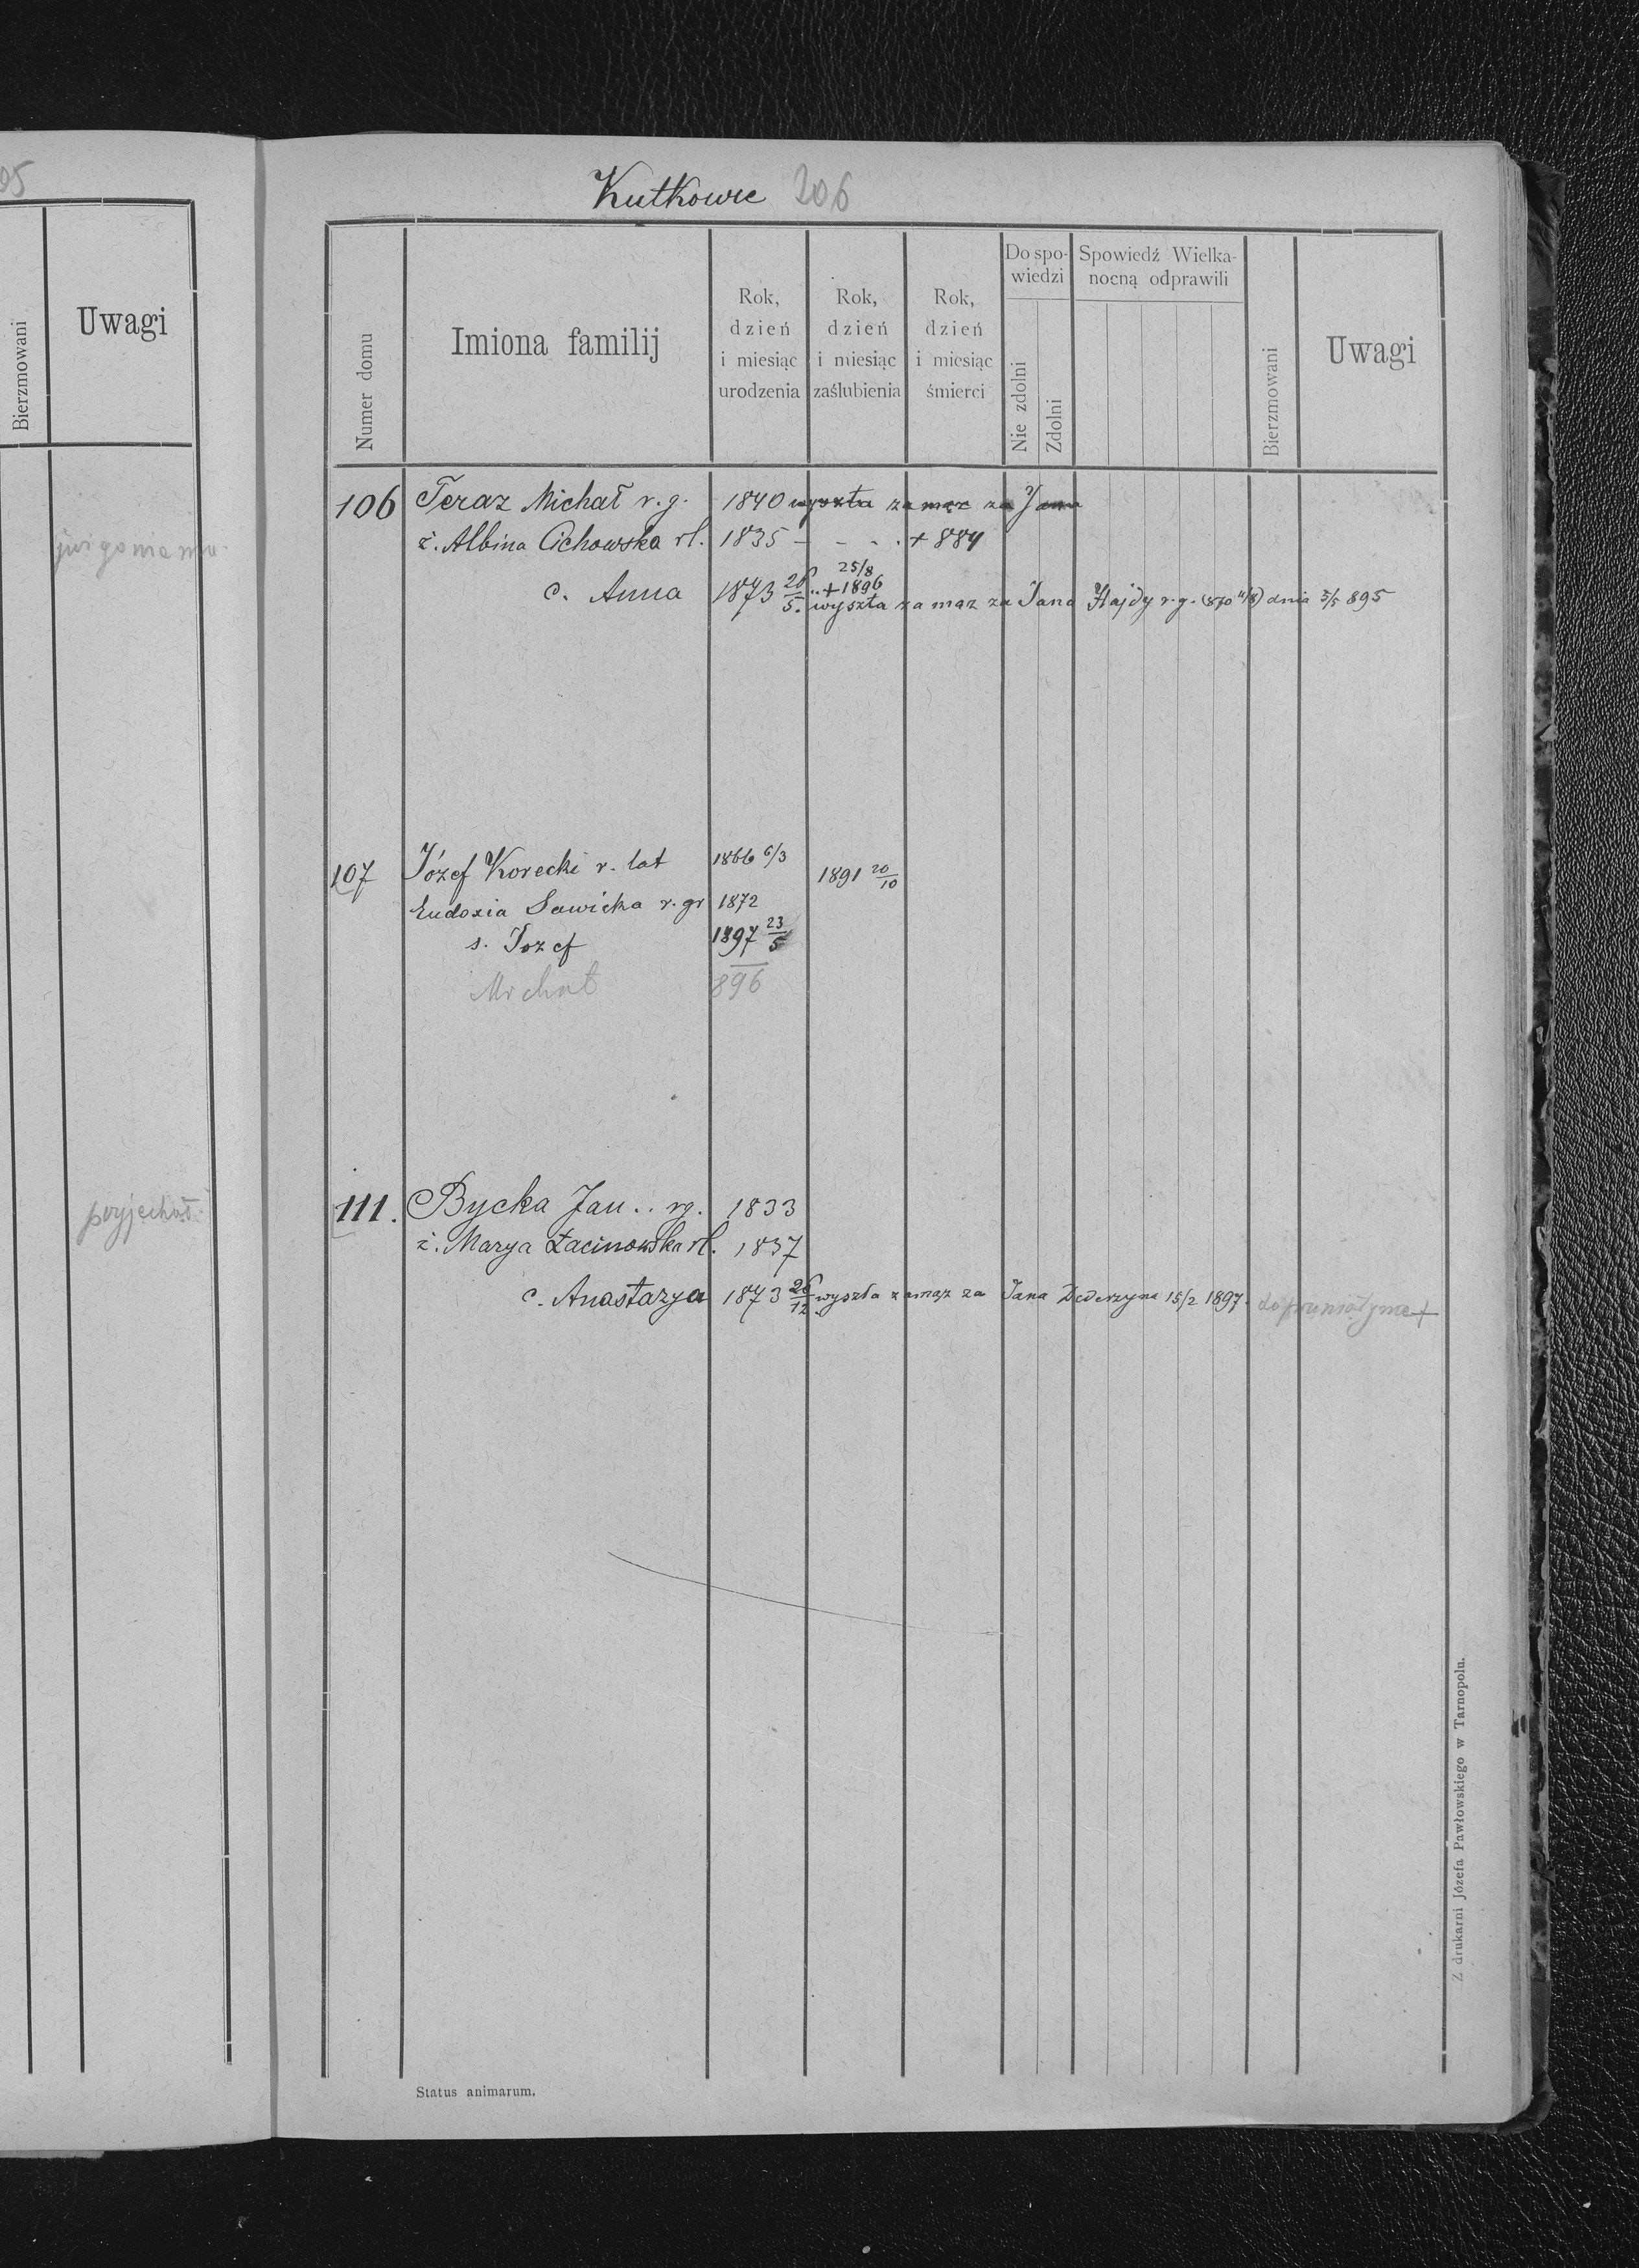 05
Bierzmowani
Uwagi
Kutkowce 206
Numer domu
Imiona familij
Rok,
dzień
i miesiąc
urodzenia
Rok,
dzień
i miesiąc
zaślubienia
Rok,
dzień
i miesiąc
śmierci
Do spo-
wiedzi
Nie zdolni
Zdolni
Spowiedź Wielka-
nocną odprawili
Bierzmowani
Uwagi
106 Teraz Michał r. g. 1840 wyszła za mąż za Jana
ż. Albina Cichowska rl. 1835 - - - . + 884
25/8
+ 1896
c. Anna 1873 26/5. wyszła za mąż za Jana Hajdy r. g. (870 11/8) dnia 5/5 895
107 Józef Korecki r. lat 1866 6/3 1891 20/10
Eudoxia Sawicka r. gr 1872
s. Jozef 1897 23/5
Michał 896
111. Bycka Jan .. rg. 1833
ż. Marya Łacinowska rl. 1837
c. Anastazya 1873 26/12 wyszła za mąż za Jana Dederzyna 15/2 1897.
Status animarum.
Z drukarni Józefa Pawłowskiego w Tarnopolu.